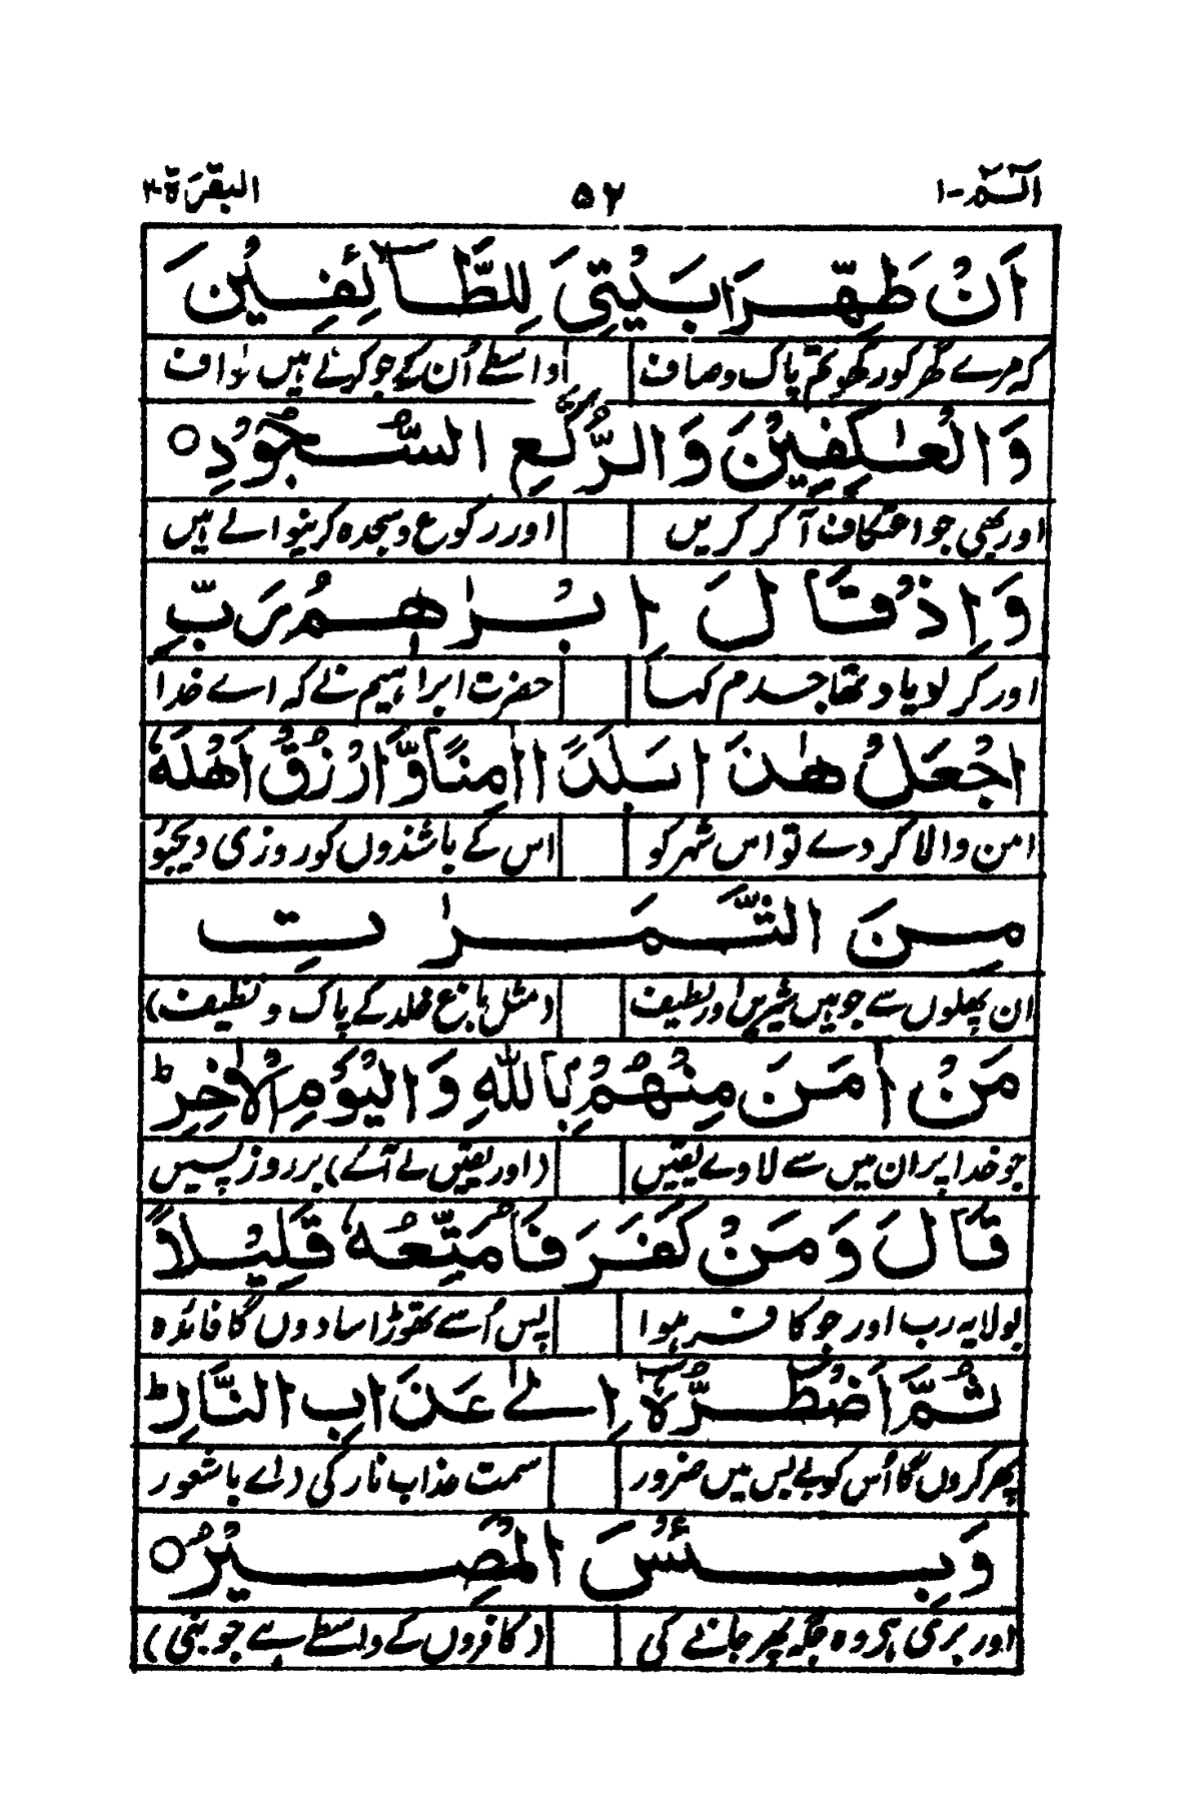 الٓمّٓ-۱ ۵۲ البقرة-۲
اَنْ طَهِّرَا بَيْتِيَ لِلطَّآئِفِيْنَ
کہ مرے گھر کو رکھو تم پاک و صاف واسطے اُن کے جو کرتے ہیں طواف
وَالْعٰكِفِيْنَ وَالرُّكَّعِ السُّجُوْدِ ○
اور بھی جو اعتکاف آ کر کریں اور رکوع و سجدہ کرنیوالے ہیں
وَاِذْ قَالَ اِبْرٰهٖمُ رَبِّ
اور کر لو یاد تھا جس دم کہا حضرت ابراہیم نے کہ اے خدا
اجْعَلْ هٰذَا بَلَدًا اٰمِنًا وَّارْزُقْ اَهْلَهٗ
امن والا کر دے تو اس شہر کو اس کے باشندوں کو روزی دیجیو
مِنَ الثَّمَرٰتِ
ان پھلوں سے جو ہیں شیریں اور لطیف (مثل باغ خلد کے پاک و نظیف)
مَنْ اٰمَنَ مِنْهُمْ بِاللّٰهِ وَالْيَوْمِ الْاٰخِرِ ؕ
جو خدا پر ان میں سے لاوے یقیں (اور یقیں لے آئے) بر روز پسیں
قَالَ وَمَنْ كَفَرَ فَاُمَتِّعُهٗ قَلِيْلًا
بولا یہ رب اور جو کافر ہوا پس اُسے تھوڑا سا دوں گا فائدہ
ثُمَّ اَضْطَرُّهٗۤ اِلٰى عَذَابِ النَّارِ ؕ
پھر کروں گا اُس کو بے بس میں ضرور سمت عذاب نار کی (اے باشعور
وَبِئْسَ الْمَصِيْرُ ○
اور بری ہی وہ جگہ پھر جانے کی (کافروں کے واسطے ہے جو بنی)